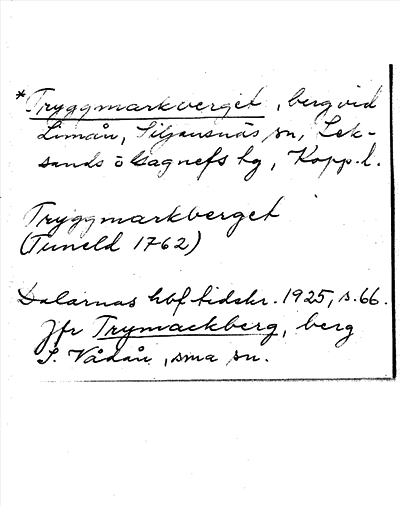 *Tryggmarkberget, berg vid
Limån, Siljansnäs sn, Lek-
sands o Gagnefs tg, Kopp. l.
Tryggmarkberget
(Tuneld 1762)
Dalarnas hbf tidskr. 1925, s. 66.
Jfr Trymackberg, berg
S. Vådån, sma sn.